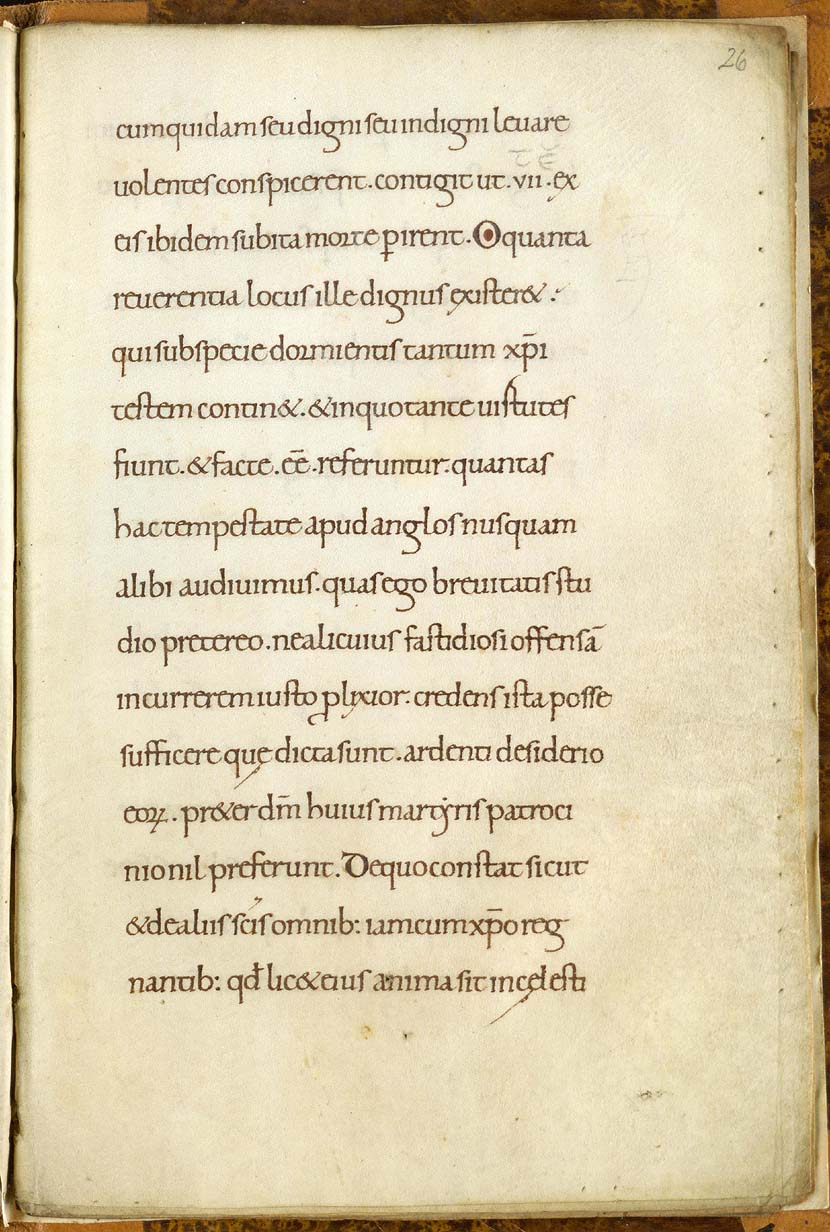 26
cumquidam seu digni seu indigni leuare
uolentes conspicerent. contigit ut .vii. ex
eis ibidem subita morte ꝑirent. O quanta
reuerentia locus ille dignus exister&.
qui sub specie dormientis tantum xp̄i
testem contin&. & in quo tante uirtutes
fiunt. & facte .eē. referuntur. quantas
hac tempestate apud anglos nusquam
alibi audiuimus. quas ego breuitatis stu
dio pretereo. ne alicuius fastidiosi offensā
incurrerem iusto ꝓlixior. credens ista posse
sufficere quę dicta sunt. ardenti desiderio
eoꝝ. pr&er dm̄ huius martyris patroci
nio nil preferunt. De quo constat sicut
& de aliis scīs omnib: iam cum xp̄o reg
nantib: qd̄ lic& eius anima sit in cęlesti